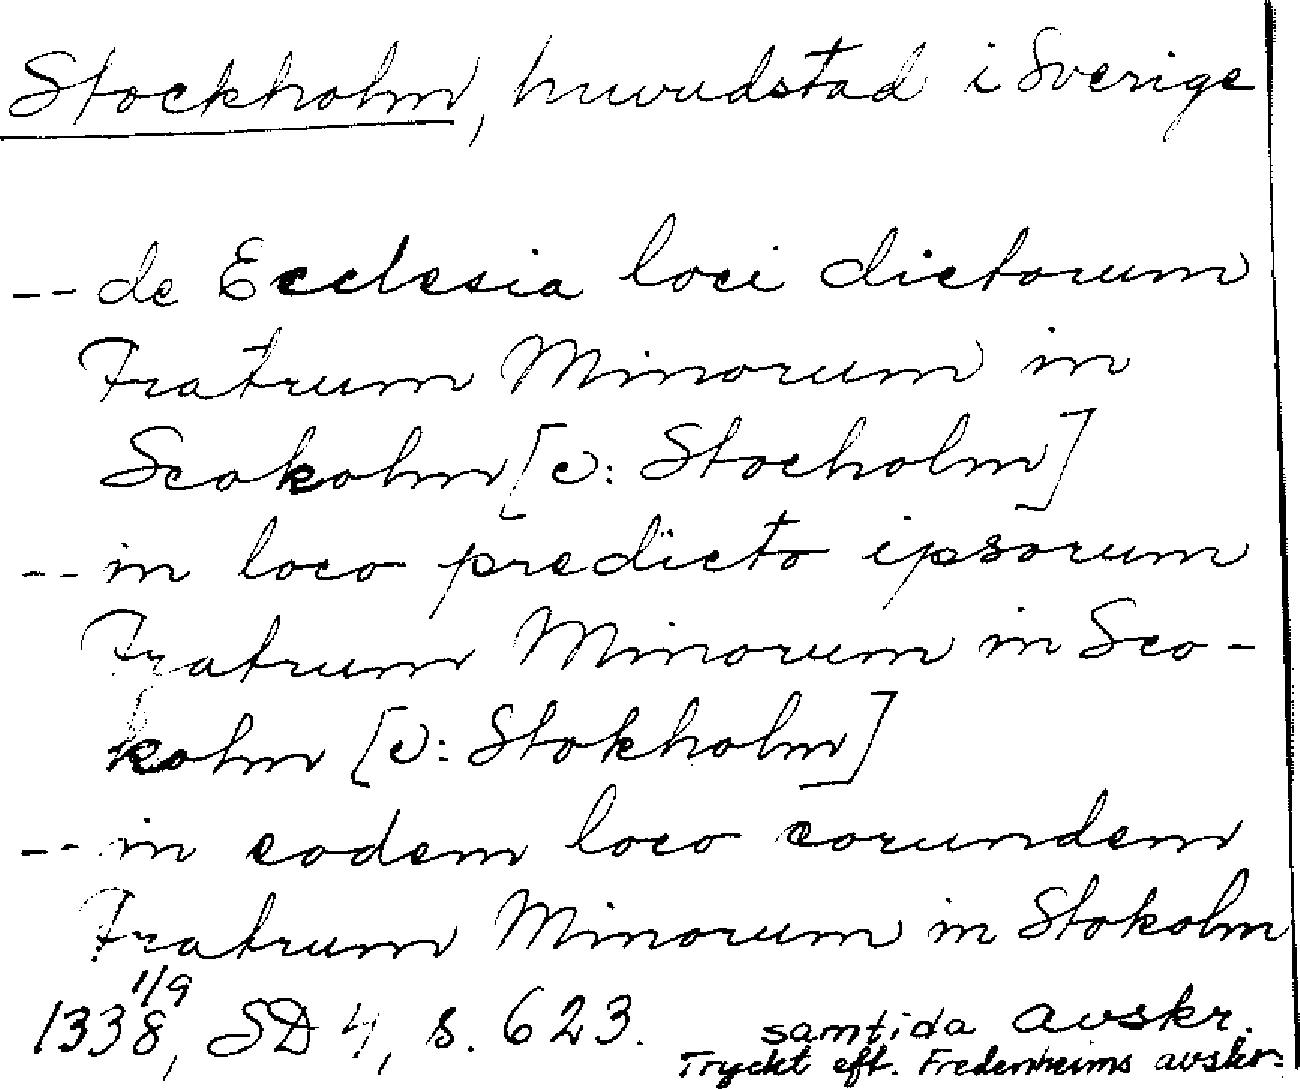 Stockholm, huvudstad i Sverige
-- de Ecclesia loci dictorum
Fratrum Minorum in
Scokolm [ɔ: Stocholm]
-- in loco predicto ipsorum
Fratrum Minorum in Sco-
kolm [ɔ: Stokholm]
-- in eodem loco eorundem
Fratrum Minorum in Stokolm
1338 1/9, SD 4, s. 623. samtida avskr.
Tryckt eft. Fredenheims avskr.